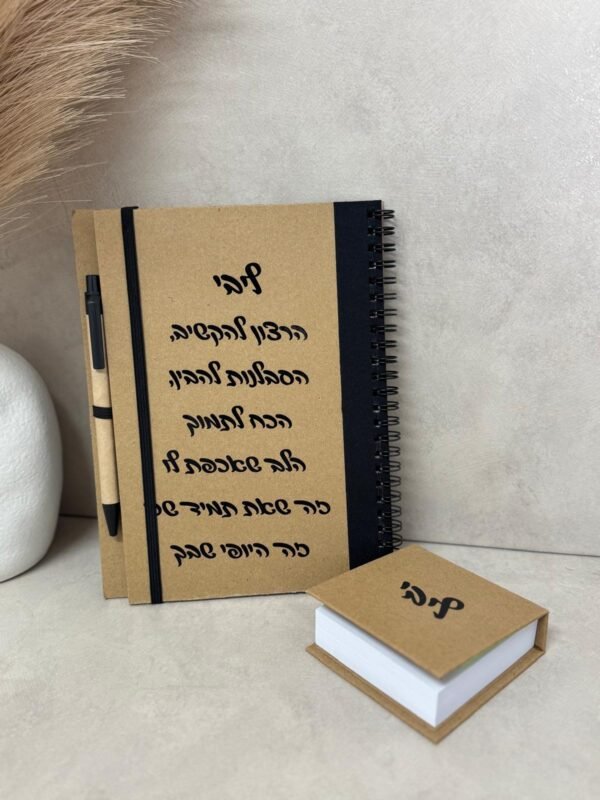 ליבי
הרצון להקשיב,
הסבלנות להבין,
הכח לתמוך
הלב שאכפת לו
זה שאת תמיד
זה היופי שבך
ליבי